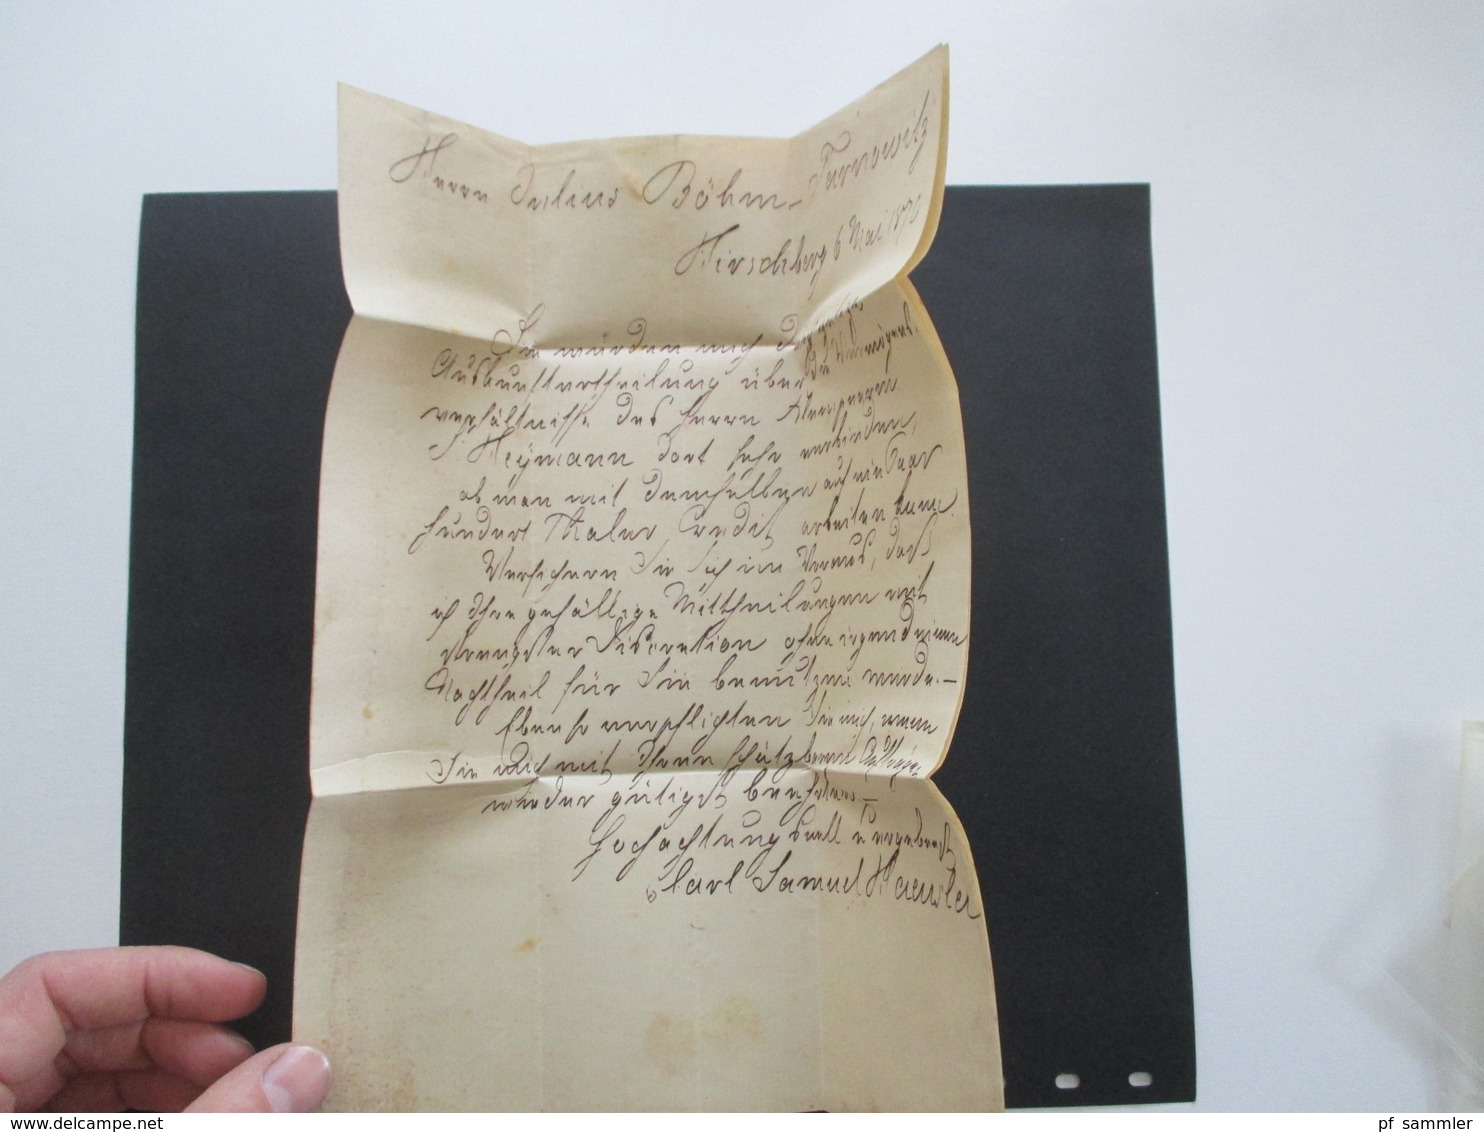 Herrn Julius Böhm - Tarnowitz
Hirschberg 6 Mai 1870
Sie würden mich durch gütige
Auskunftertheilung über die Vermögens-
verhältnisse des Herrn
S. Heymann dort sehr verbinden,
ob man mit demselben auf ein Paar
hundert Thaler Credit arbeiten kann.
Versichern Sie sich im Voraus, daß
ich Ihre gefällige Mittheilungen mit
strengster Discretion ohne irgend einen
Nachtheil für Sie benützen werde.—
Ebenso verpflichten Sie mich, wenn
Sie mich mit Ihren schätzbaren Aufträgen
wieder gütigst beehren.—
Hochachtungsvoll u ergebenst
Carl Samuel Haeusler
www.delcampe.net
pf_sammler